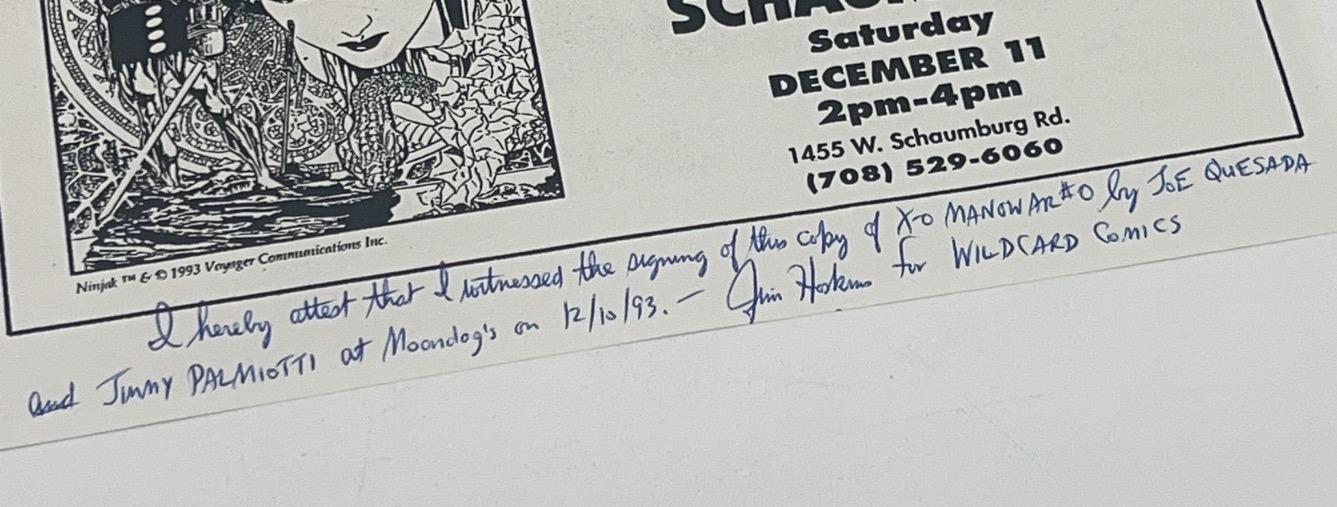 SCHAU
Saturday
DECEMBER 11
2pm-4pm
1455 W. Schaumburg Rd.
(708) 529-6060
Ninjak ™ & © 1993 Voyager Communications Inc.
I hereby attest that I witnessed the signing of this copy of X-O MANOWAR #0 by JOE QUESADA
and JIMMY PALMIOTTI at Moondog's on 12/10/93. — Jim Hoskins for WILDCARD COMICS